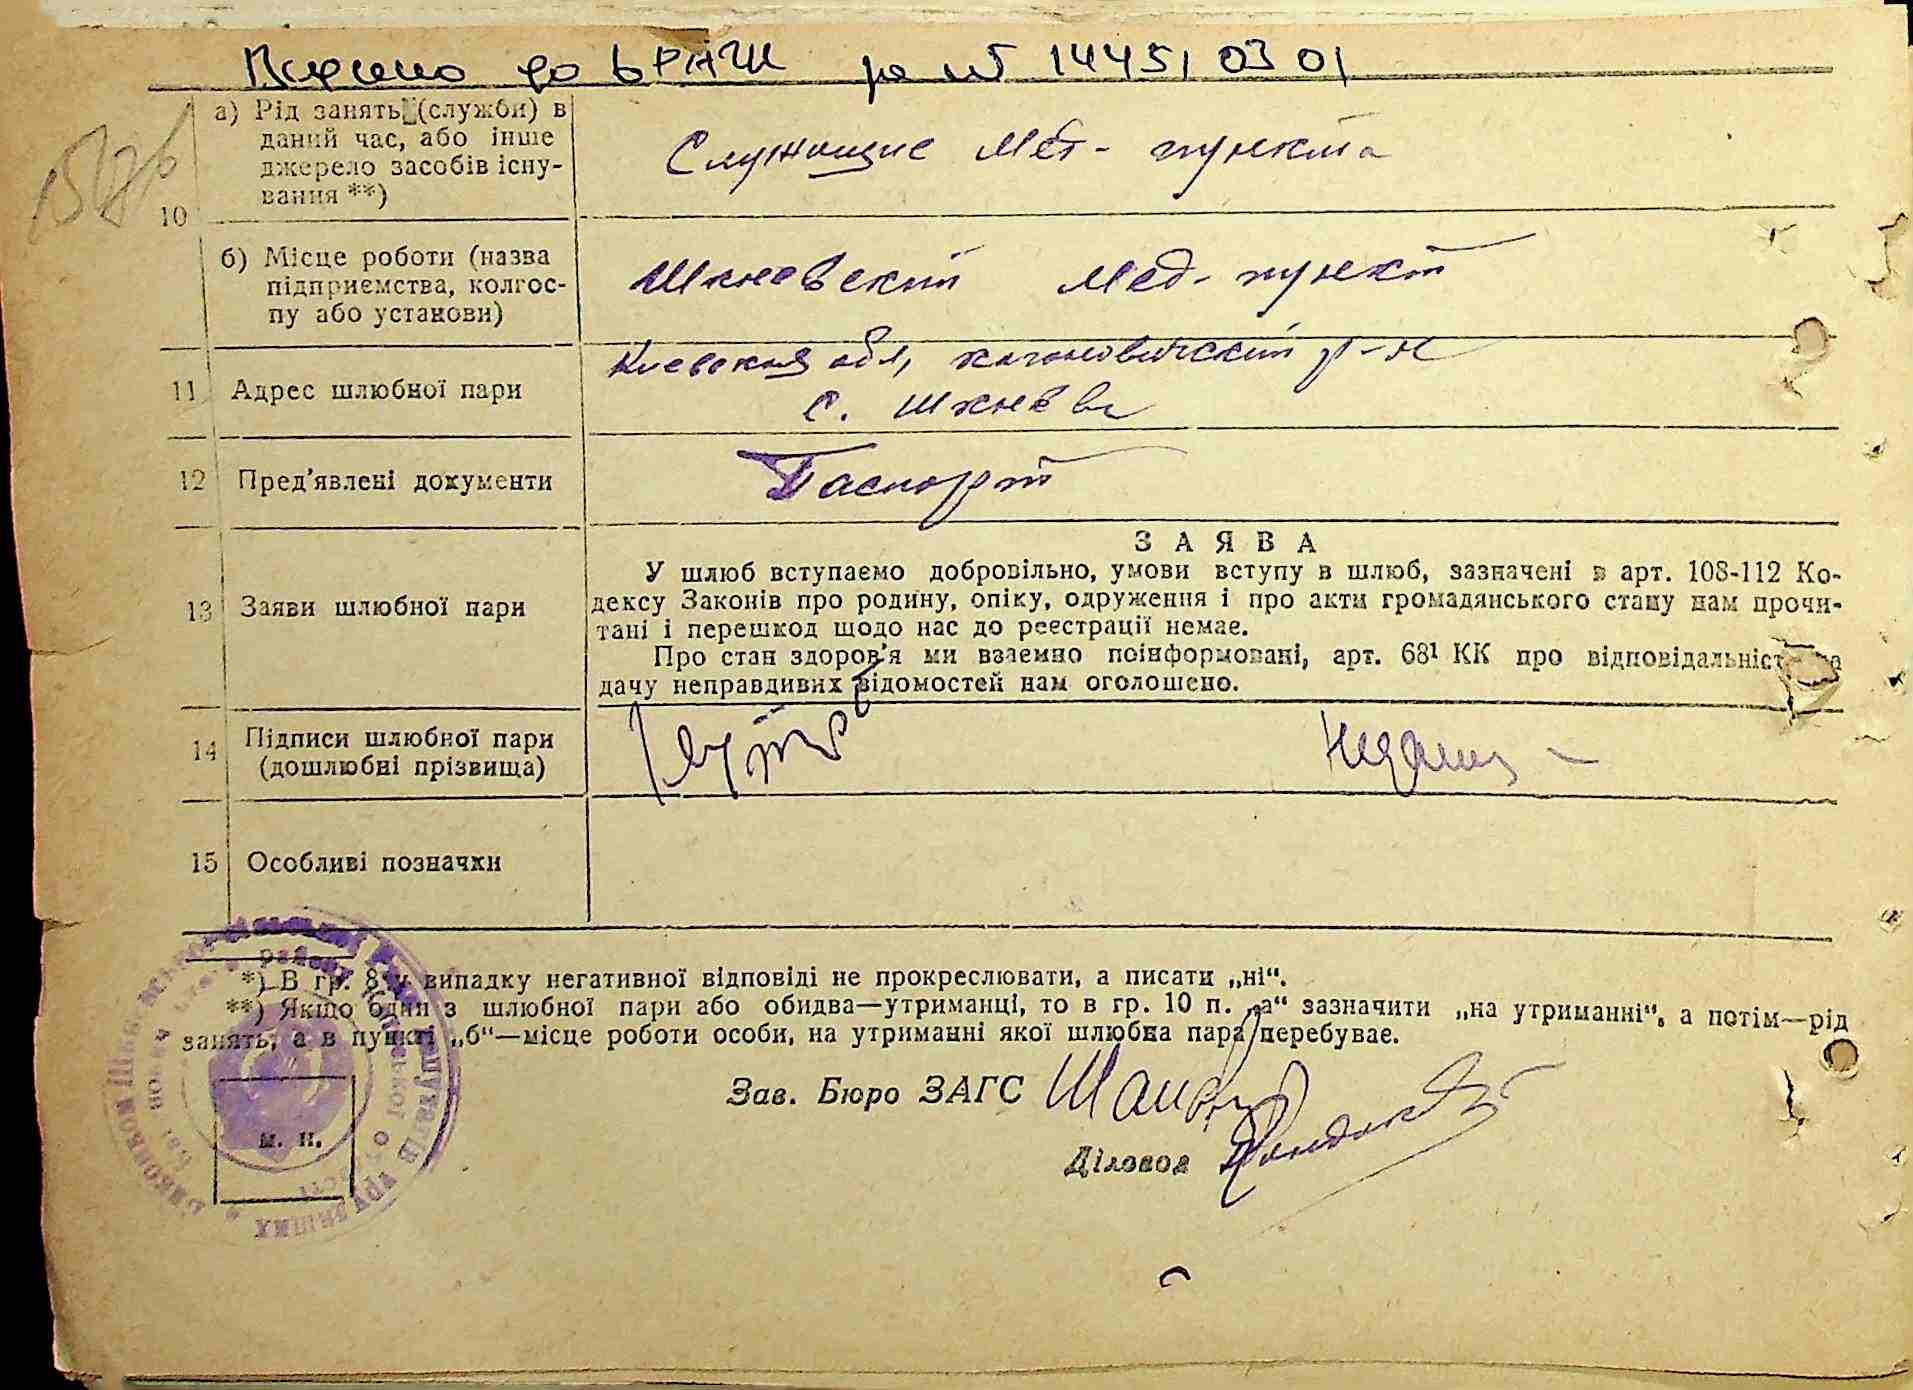 до р № 14451 03 01
а) Рід занять (служби) в
даний час, або інше
джерело засобів існу-
вання **)
Служащие Мед-пункта
10
б) Місце роботи (назва
підприємства, колгос-
пу або установи)
Мед-пункт
11 Адрес шлюбної пари
Киевская обл, кагановичский р-н
с.
12 Пред'явлені документи
Паспорт
З А Я В А
13 Заяви шлюбної пари
У шлюб вступаємо добровільно, умови вступу в шлюб, зазначені в арт. 108-112 Ко-
дексу Законів про родину, опіку, одруження і про акти громадянського стану нам прочи-
тані і перешкод щодо нас до реєстрації немає.
Про стан здоров'я ми взаємно поінформовані, арт. 68¹ КК про відповідальність за
дачу неправдивих відомостей нам оголошено.
14 Підписи шлюбної пари
(дошлюбні прізвища)
15 Особливі позначки
*) В гр. 8 у випадку негативної відповіді не прокреслювати, а писати „ні“.
**) Якщо один з шлюбної пари або обидва—утриманці, то в гр. 10 п. „а“ зазначити „на утриманні“, а потім—рід
занять, а в пункті „б“—місце роботи особи, на утриманні якої шлюбна пара перебуває.
Зав. Бюро ЗАГС
Діловод
м. п.